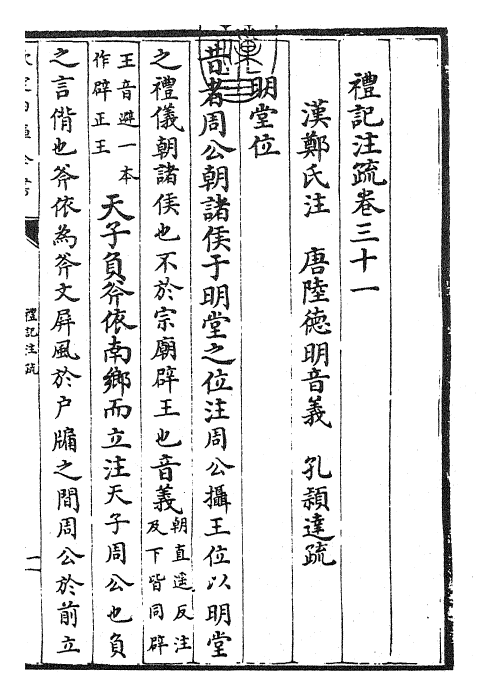 禮記注疏卷三十一
漢鄭氏注 唐陸德明音義 孔穎達疏
明堂位
昔者周公朝諸侯于明堂之位注周公攝王位以明堂
之禮儀朝諸侯也不於宗廟辟王也音義朝直遥反注
及下皆同辟
王音避一本
作辟正王
天子負斧依南鄉而立注天子周公也負
之言偝也斧依為斧文屏風於户牖之間周公於前立
禮記注疏
一